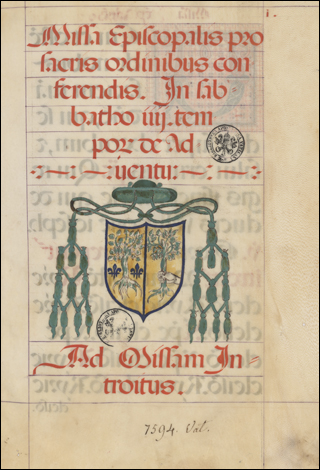 1.
Missa Episcopalis pro
sacris ordinibus con
ferendis. In sab
batho iiij. tem
por. de Ad
uentu
Ad Missam In-
troitus.
7594. Vat.